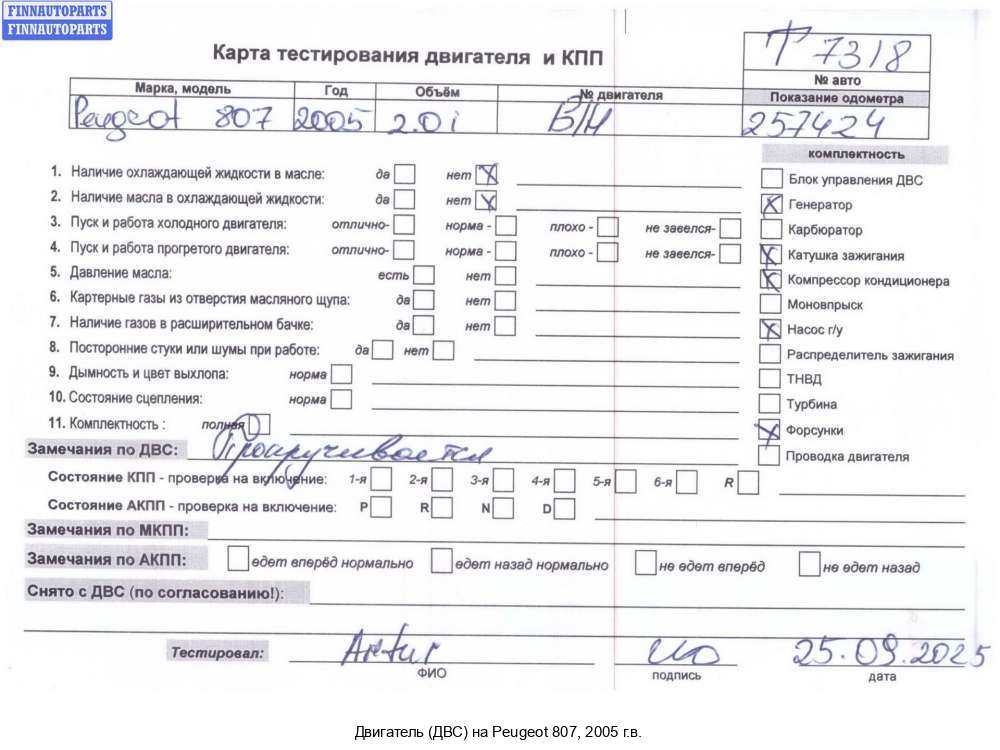 FINNAUTOPARTS
FINNAUTOPARTS
Карта тестирования двигателя и КПП
Т 7318
№ авто
Марка, модель Год Объём № двигателя Показание одометра
Peugeot 807 2005 2.0 i Б/Н 257424
комплектность
1. Наличие охлаждающей жидкости в масле: да нет
Блок управления ДВС
2. Наличие масла в охлаждающей жидкости: да нет
Генератор
3. Пуск и работа холодного двигателя: отлично- норма - плохо - не завелся-
Карбюратор
4. Пуск и работа прогретого двигателя: отлично- норма - плохо - не завелся-
Катушка зажигания
5. Давление масла: есть нет
Компрессор кондиционера
6. Картерные газы из отверстия масляного щупа: да нет
Моновпрыск
7. Наличие газов в расширительном бачке: да нет
Насос г/у
8. Посторонние стуки или шумы при работе: да нет
Распределитель зажигания
9. Дымность и цвет выхлопа: норма
ТНВД
10. Состояние сцепления: норма
Турбина
11. Комплектность : полная
Форсунки
Замечания по ДВС: Прокручивается
Проводка двигателя
Состояние КПП - проверка на включение: 1-я 2-я 3-я 4-я 5-я 6-я R
Состояние АКПП - проверка на включение: P R N D
Замечания по МКПП:
Замечания по АКПП: едет вперёд нормально едет назад нормально не едет вперёд не едет назад
Снято с ДВС (по согласованию!):
Тестировал: Artur 25.09.2025
ФИО подпись дата
Двигатель (ДВС) на Peugeot 807, 2005 г.в.